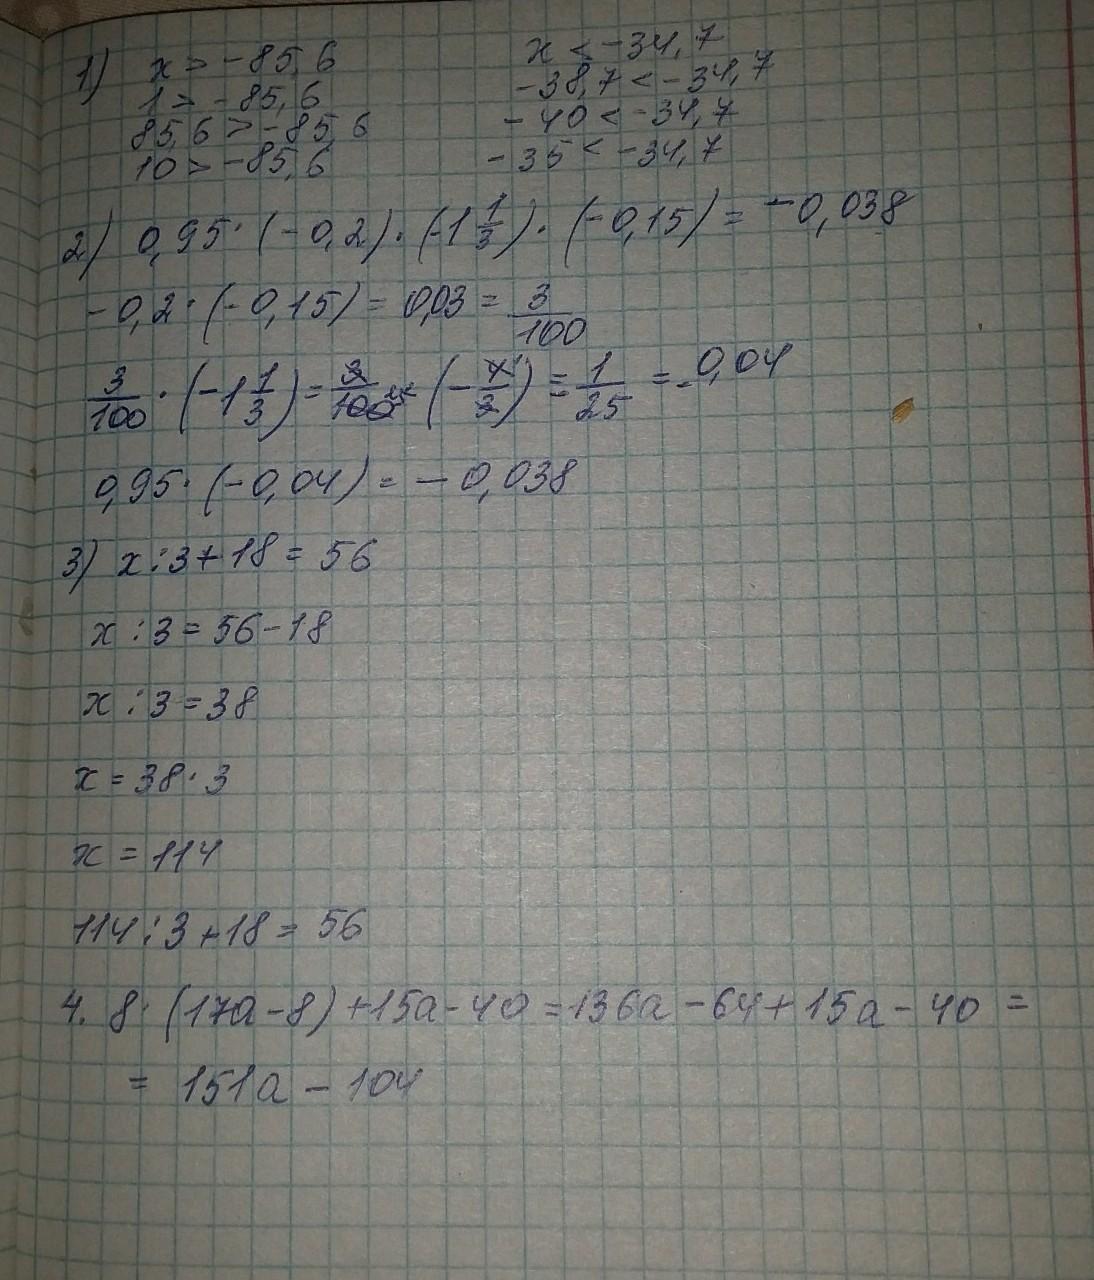 1) x > -85,6 x < -34,7
1 > -85,6 -38,7 < -34,7
85,6 > -85,6 -40 < -34,7
10 > -85,6 -35 < -34,7
2) 0,95 · (-0,2) · (-1 1/3) · (-0,15) = -0,038
-0,2 · (-0,15) = 0,03 = 3/100
3/100 · (-1 1/3) = 3/100 · (-4/3) = 1/25 = -0,04
0,95 · (-0,04) = -0,038
3) x : 3 + 18 = 56
x : 3 = 56 - 18
x : 3 = 38
x = 38 · 3
x = 114
114 : 3 + 18 = 56
4. 8 · (17a - 8) + 15a - 40 = 136a - 64 + 15a - 40 =
= 151a - 104